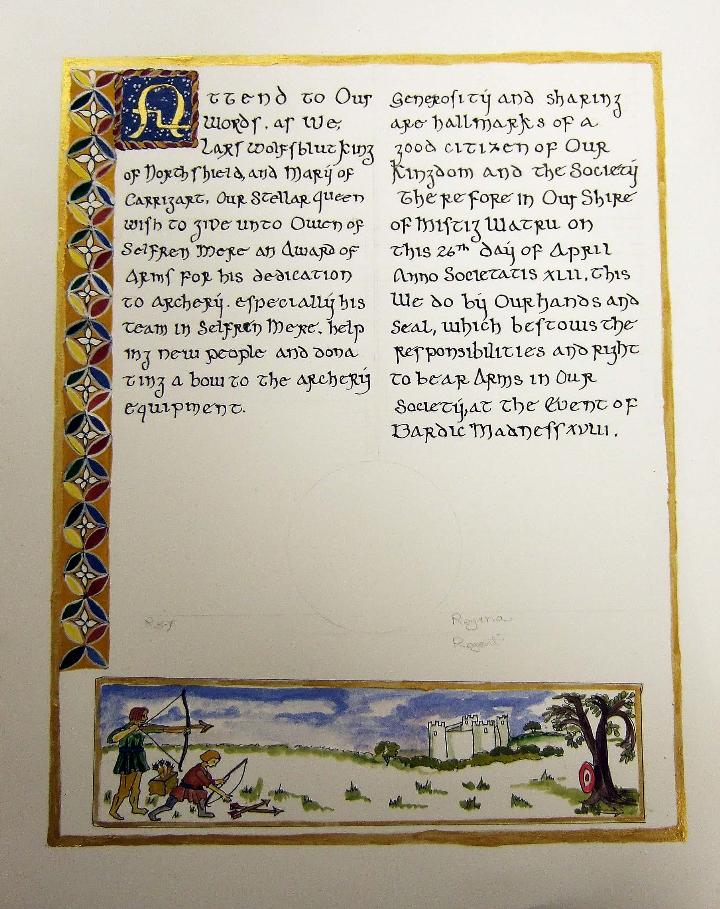 Attend to Our
Words, as We,
Lars Wolfsblut King
of Northshield, and Mary of
Carrizart, Our Stellar Queen
wish to give unto Owen of
Selfren Mere an Award of
Arms for his dedication
to archery. especially his
team in Selfren Mere. help
ing new people and dona
ting a bow to the archery
equipment.
Generosity and sharing
are hallmarks of a
good citizen of Our
Kingdom and the Society
Therefore in Our Shire
of Mistig Waetru on
this 26th day of April
Anno Societatis XLII, this
We do by Our hands and
Seal, which bestows the
responsibilities and right
to bear Arms in Our
Society, at the Event of
Bardic Madness XVIII.
Regina